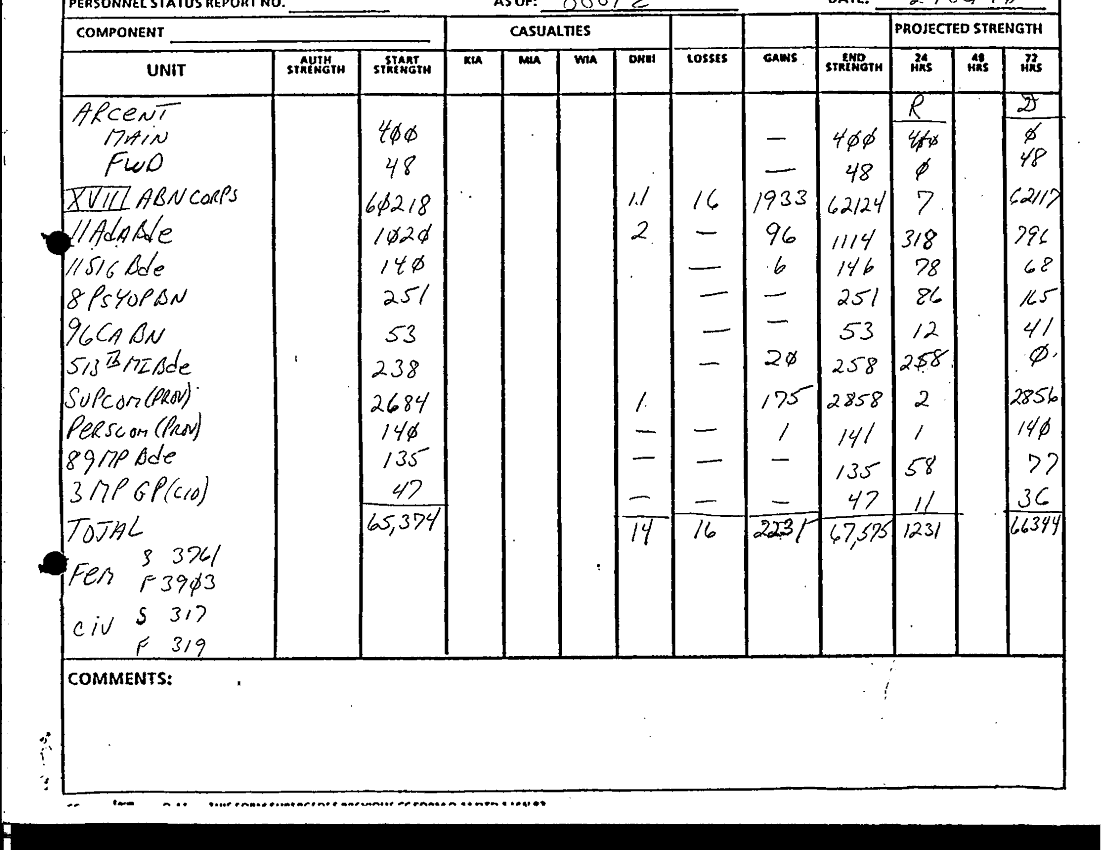 PERSONNEL STATUS REPORT NO. AS OF: DATE:
COMPONENT CASUALTIES PROJECTED STRENGTH
UNIT AUTH STRENGTH START STRENGTH KIA MIA WIA DNBI LOSSES GAINS END STRENGTH 24 HRS 48 HRS 72 HRS
ARCENT R D
MAIN 4ØØ — 4ØØ 4ØØ Ø
FWD 48 — 48 Ø 48
XVIII ABN CORPS 6Ø218 11 16 1933 62124 7 62117
11 AdA Bde 1Ø2Ø 2 — 96 1114 318 796
11 SIG Bde 14Ø — 6 146 78 68
8 PSYOP BN 251 — — 251 86 165
96 CA BN 53 — — 53 12 41
513th MI Bde 238 — 2Ø 258 258 Ø
SUPCOM (PROV) 2684 1 175 2858 2 2856
PERSCOM (PROV) 14Ø — — 1 141 1 14Ø
89 MP Bde 135 — — — 135 58 77
3 MP GP (CID) 47 — — — 47 11 36
TOTAL 65,374 14 16 2231 67,575 1231 66344
Fem S 3761
F 39Ø3
civ S 317
F 319
COMMENTS: